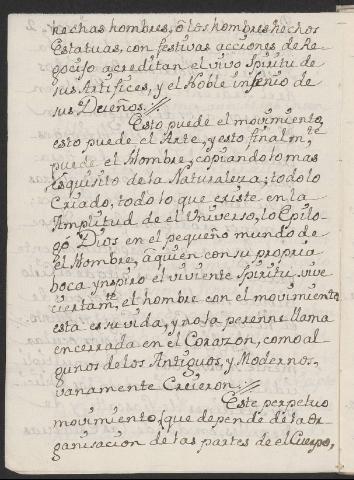 hechas hombres, ô los hombres hechos
Estatuas, con festivas acciones de Re-
gocijo acreditan el vivo Spiritu de
sus Artifices, y el Noble insenio de
sus Dueños.//
Esto puede el movimiento,
esto puede el Arte, y esto finalm.te
puede el Hombre, copiando lo mas
exquisito de la Naturaleza; todo lo
Criado, todo lo que existe en la
Amplitud de el Universo, lo Epilo-
gó Dios en el pequeño mundo de
el Hombre, a quien con su propria
boca ynspiro el viviente Spiritu: vive
ciertam.te el hombre con el movimiento
esta es su vida, y no la perenne llama
encerrada en el Corazon, como al-
gunos de los Antiguos, y Modernos,
vanamente Creieron://
Este perpetuo
movimiento, (que depende de la Or-
ganisacion de las partes de el Cuerpo,